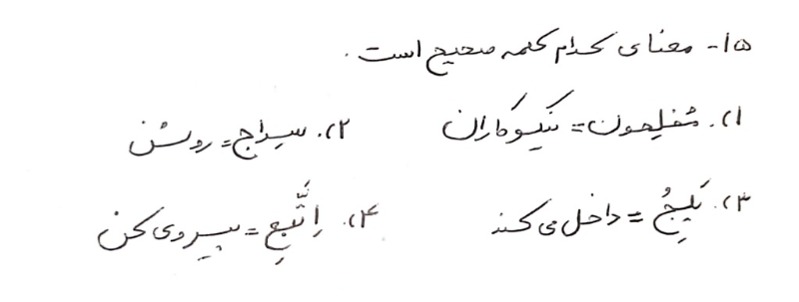 ۱۵- معنای کدام کلمه صحیح است.
۱). مُفلِحون = نیکوکاران ۲). سِراج = روشن
۳). یَلِجُ = داخل می‌کند ۴). اِتَّبِع = پیروی کن